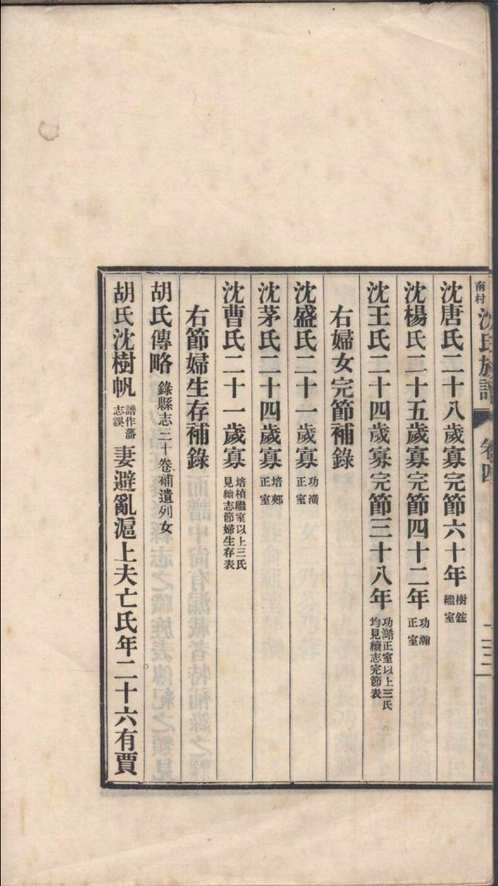 南村沈氏族譜 卷四
沈唐氏二十八歲寡完節六十年 樹鋐繼室
沈楊氏二十五歲寡完節四十二年 功瀚正室
沈王氏二十四歲寡完節三十八年 功澔正室以上三氏均見續志完節表
右婦女完節補錄
沈盛氏二十一歲寡 功澔正室
沈茅氏二十四歲寡 培郟正室
沈曹氏二十一歲寡 培楨繼室以上三氏見續志節婦生存表
右節婦生存補錄
胡氏傳略 錄縣志三十卷補遺列女
胡氏沈樹帆 譜作藩志誤 妻避亂滬上夫亡氏年二十六有賈